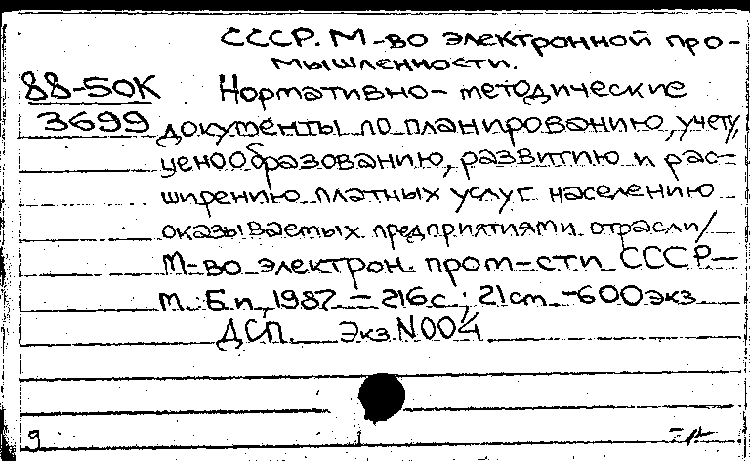 СССР. М-во электронной про-
мышленности.
88-50К Нормативно-методические
3699 документы по планированию, учету,
ценообразованию, развитию и рас-
ширению платных услуг населению
оказываемых предприятиями отрасли/
М-во электрон. пром-сти СССР.-
М.: Б.и, 1987. - 216с.; 21см -600экз
ДСП. Экз. N004
9